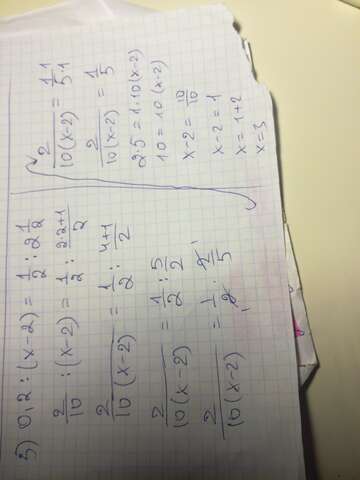 3) 0,2 : (x-2) = 1/2 : 2 1/2
2/10 : (x-2) = 1/2 : 2·2+1/2
2/10(x-2) = 1/2 : 4+1/2
2/10(x-2) = 1/2 : 5/2
2/10(x-2) = 1/2 · 2/5
2/10(x-2) = 1·1/5·1
2/10(x-2) = 1/5
2·5=1·10(x-2)
10=10(x-2)
x-2=10/10
x-2=1
x=1+2
x=3